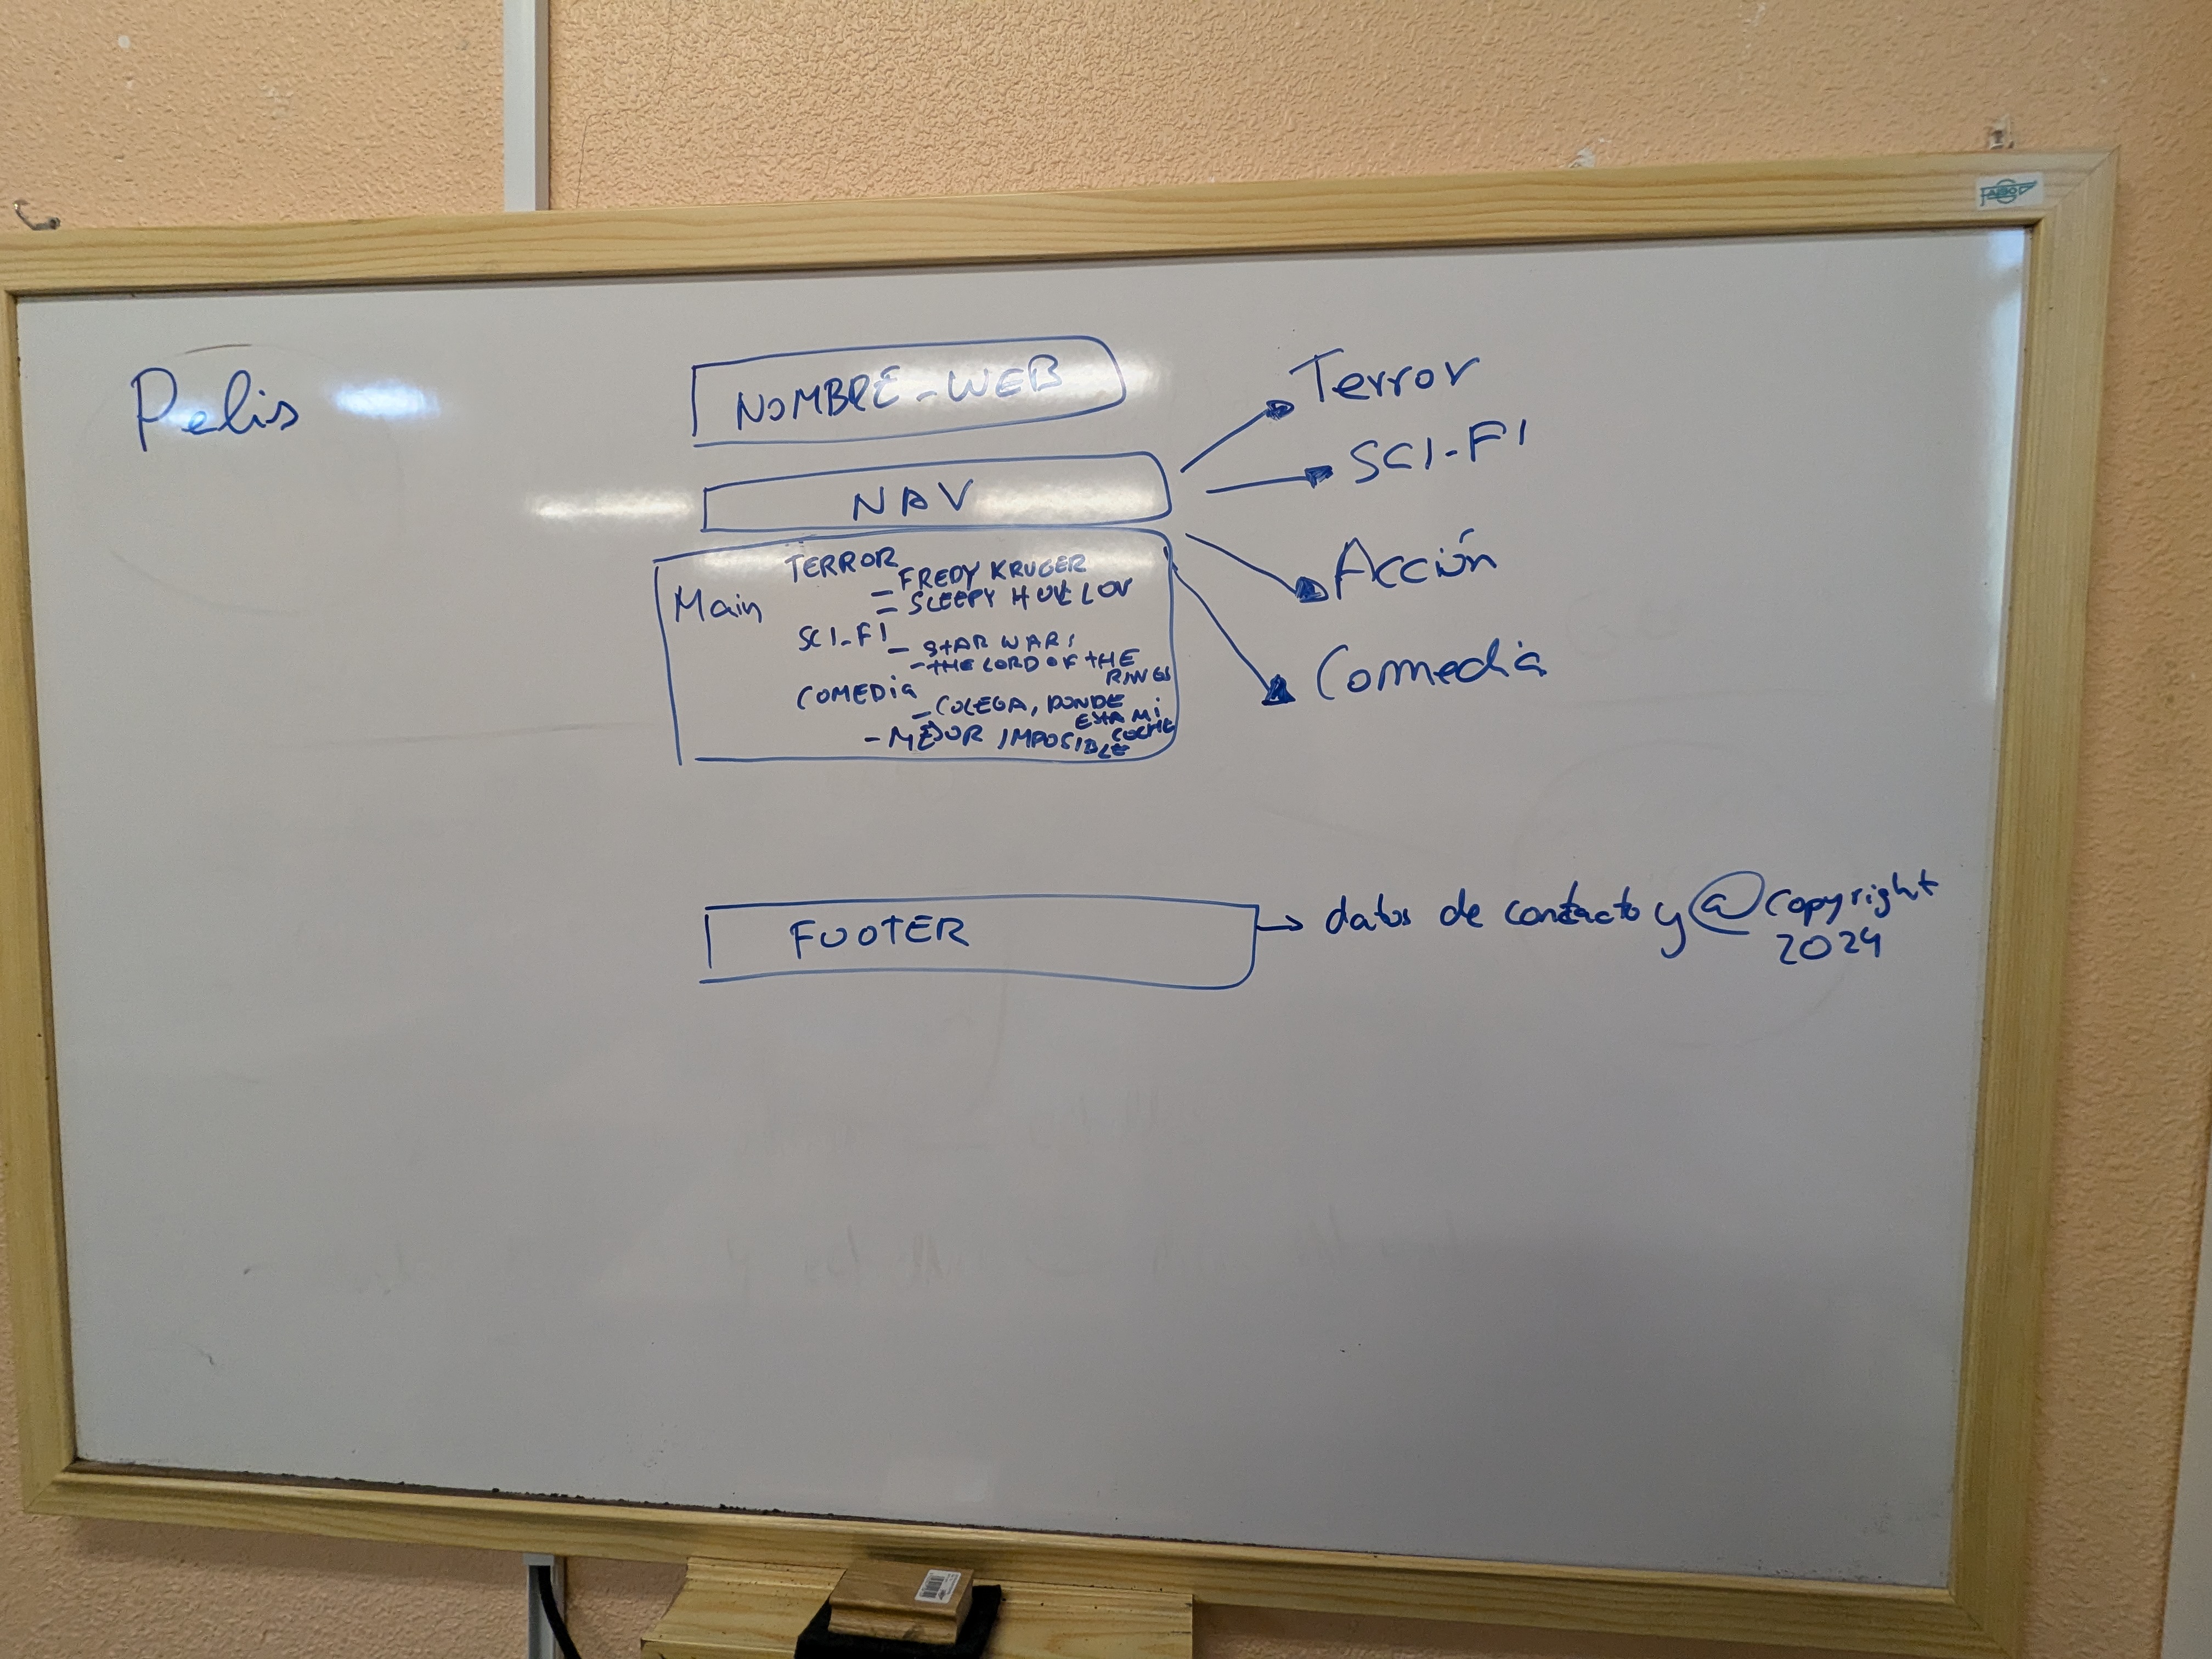 Pelis
NOMBRE-WEB
NAV
Terror
SCI-FI
Acción
Comedia
Main
TERROR
- FREDY KRUGER
- SLEEPY HOLLOV
SCI-FI
- STAR WARS
- THE LORD OF THE
RINGS
COMEDIA
- COLEGA, DONDE
ESTA MI
COCHE
- MEJOR IMPOSIBLE
FOOTER
datos de contacto y @ copyright
2024